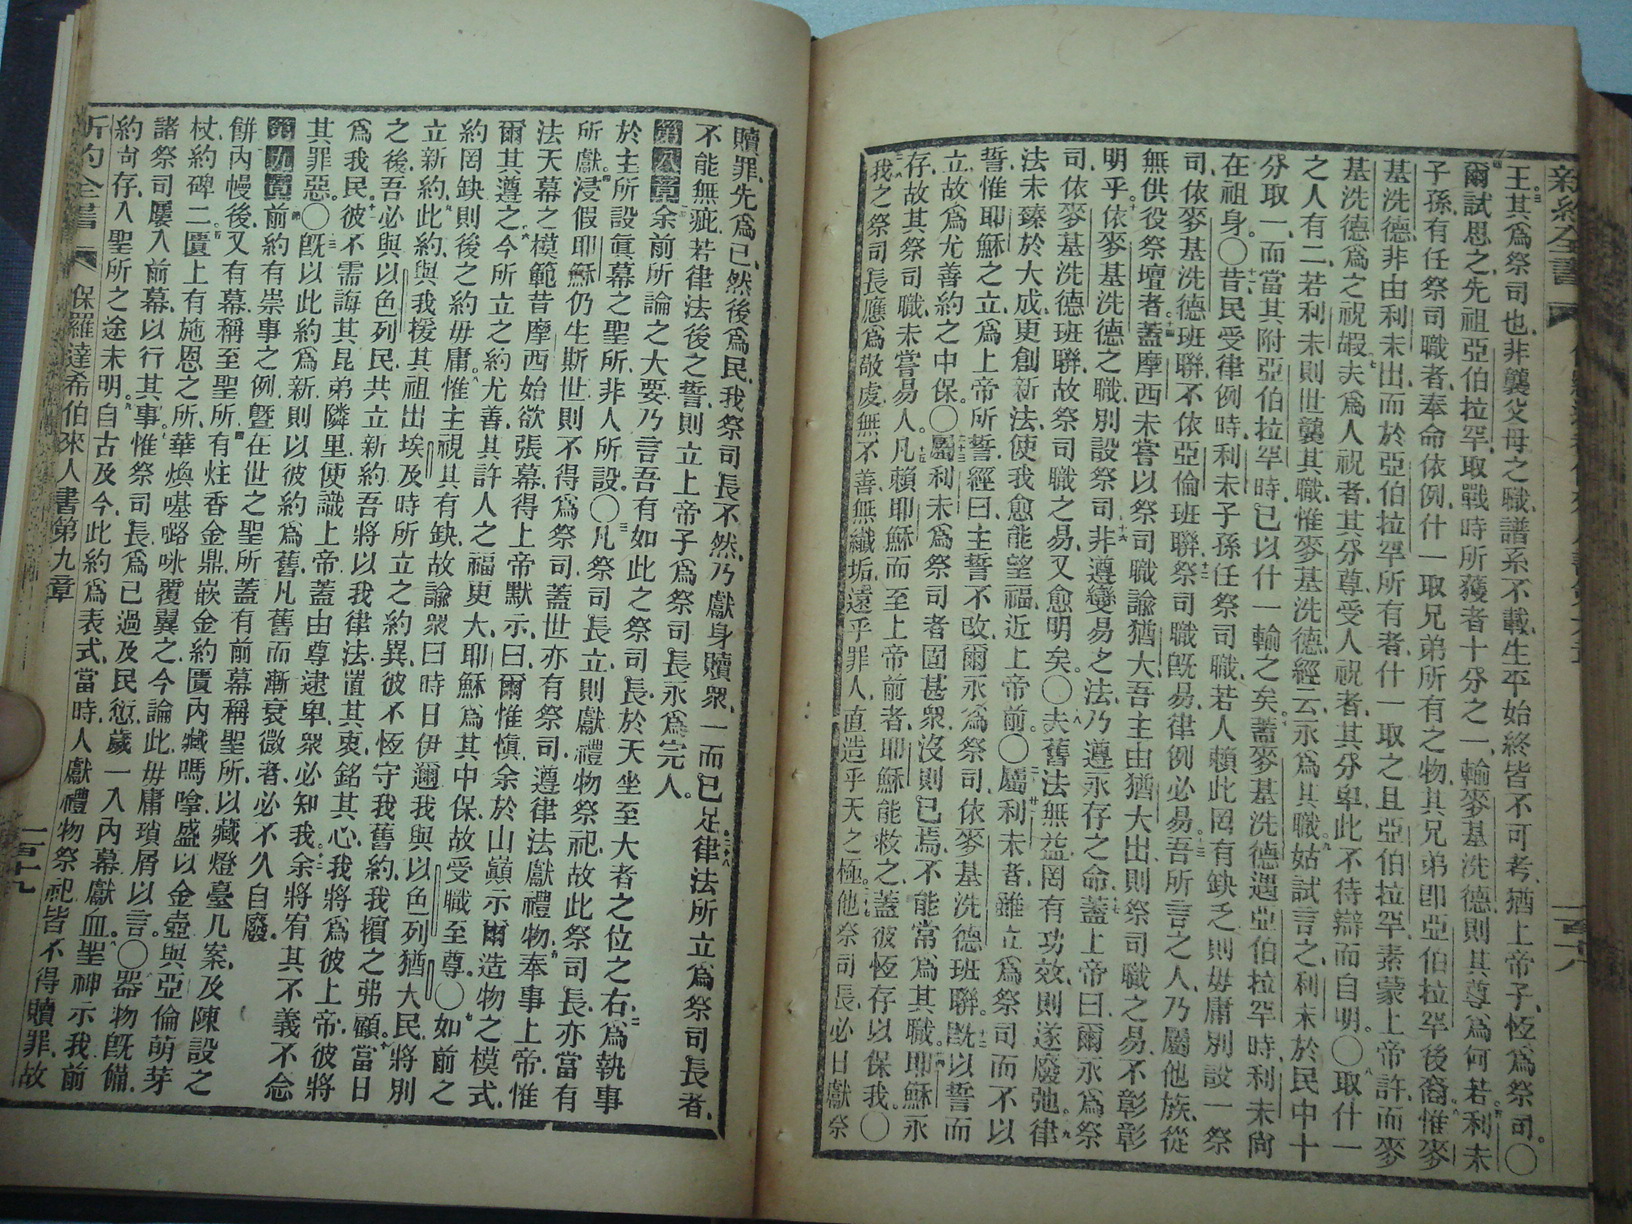 新約全書
王其爲祭司也、非襲父母之職、譜系不載、生平始終、皆不可考、猶上帝子、恆爲祭司。〇
爾試思之、先祖亞伯拉罕、取戰時所獲者十分之一、輸麥基洗德、則其尊爲何若、利未
子孫、有任祭司職者、奉命依例、什一取兄弟所有之物、其兄弟卽亞伯拉罕後裔、惟麥
基洗德、非由利未出、而於亞伯拉罕所有者、什一取之、且亞伯拉罕、素蒙上帝許、而麥
基洗德爲之祝嘏、夫爲人祝者、其分尊、受人祝者、其分卑、此不待辯而自明。〇取什一
之人有二、若利未則世襲其職、惟麥基洗德、經云、永爲其職、姑試言之、利未於民中十
分取一、而當其附亞伯拉罕時、已以什一輸之矣。蓋麥基洗德遇亞伯拉罕時、利未尙
在祖身。〇昔民受律例時、利未子孫任祭司職、若人賴此罔有缺乏、則毋庸別設一祭
司、依麥基洗德班聯、不依亞倫班聯、祭司職旣易、律例必易。吾所言之人、乃屬他族、從
無供役祭壇者。蓋摩西未嘗以祭司職諭猶大、吾主由猶大出、則祭司職之易、不彰彰
明乎。依麥基洗德之職、別設祭司、非遵變易之法、乃遵永存之命、蓋上帝曰、爾永爲祭
司、依麥基洗德班聯、故祭司職之易、又愈明矣。〇夫舊法無益、罔有功效、則遂廢弛。律
法未臻於大成、更創新法、使我愈能望福、近上帝前。〇屬利未者、雖立爲祭司、而不以
誓、惟耶穌之立、爲上帝所誓、經曰、主誓不改、爾永爲祭司、依麥基洗德班聯、旣以誓而
立、故爲尤善約之中保。〇屬利未爲祭司者固甚衆、沒則已焉、不能常爲其職、耶穌永
存、故其祭司職、未嘗易人。凡賴耶穌而至上帝前者、耶穌能救之、蓋彼恆存、以保我。〇
我之祭司長、應爲敬虔、無不善、無纖垢、遠乎罪人、直造乎天之極。他祭司長、必日獻祭
一百十八
贖罪、先爲己、然後爲民、我祭司長不然、乃獻身贖衆、一而已足、律法所立爲祭司長者、
不能無疵、若律法後之誓、則立上帝子爲祭司長、永爲完人。
第八章余前所論之大要、乃言吾有如此之祭司長、於天坐至大者之位之右、爲執事
於主所設眞幕之聖所、非人所設。〇凡祭司長立、則獻禮物祭祀、故此祭司長、亦當有
所獻、浸假耶穌仍生斯世、則不得爲祭司、蓋世亦有祭司、遵律法獻禮物、奉事上帝、惟
法天幕之模範、昔摩西始欲張幕、得上帝默示、曰、爾惟愼、余於山巓示爾造物之模式、
爾其遵之、今所立之約尤善、其許人之福更大、耶穌爲其中保、故受職至尊。〇如前之
約罔缺、則後之約毋庸。惟主視其有缺、故諭衆曰、時日伊邇、我與以色列猶大民、將別
立新約、此約與我援其祖出埃及時所立之約異、彼不恆守我舊約、我擯之弗顧、當日
之後、吾必與以色列民共立新約、吾將以我律法置其衷、銘其心、我將爲彼上帝、彼將
爲我民。彼不需誨其昆弟隣里、使識上帝、蓋由尊逮卑、衆必知我。余將宥其不義、不念
其罪惡。〇旣以此約爲新、則以彼約爲舊、凡舊而漸衰微者、必不久自廢。
第九章前約有崇事之例、曁在世之聖所、蓋有前幕稱聖所、以藏燈臺几案、及陳設之
餅、內幔後、又有幕稱至聖所、有炷香金鼎、嵌金約匱、內藏嗎嗱、盛以金壺、與亞倫萌芽
杖、約碑二。匱上有施恩之所、華煥𠼻㗉咪覆翼之、今論此毋庸瑣屑以言。〇器物旣備、
諸祭司屢入前幕、以行其事、惟祭司長爲己過及民愆、歲一入內幕獻血、聖神示我、前
約尙存、入聖所之途未明。自古及今、此約爲表式、當時人獻禮物祭祀、皆不得贖罪、故
新約全書 保羅達希伯來人書第九章 一百十九